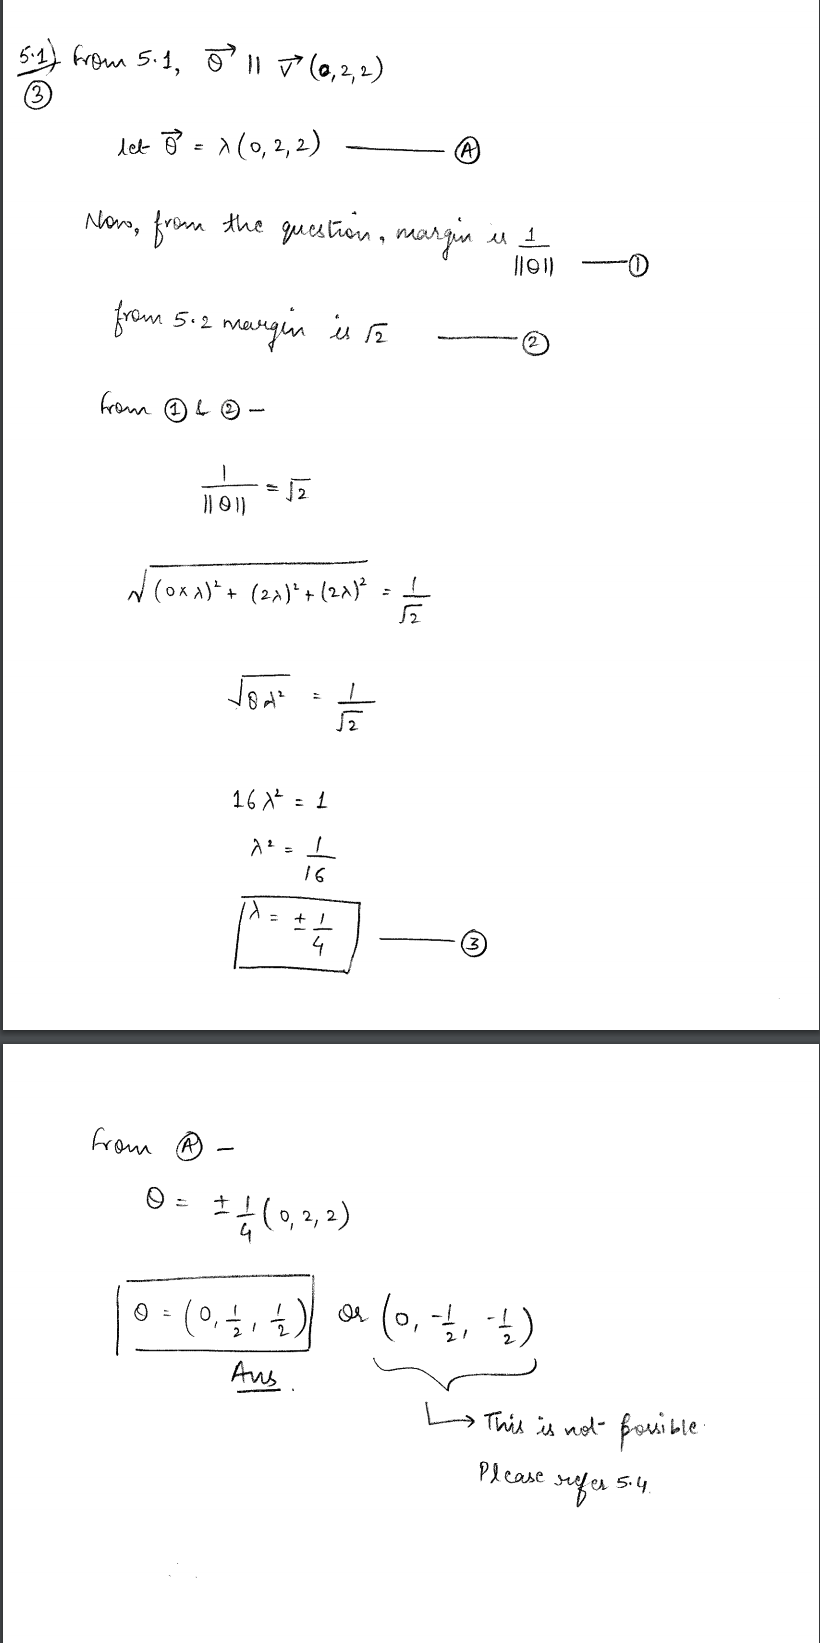 5.1) from 5.1, θ⃗ || v⃗ (0,2,2)
③
let θ⃗ = λ(0,2,2) ——— Ⓐ
Now, from the question, margin is 1/||θ|| —①
from 5.2 margin is √2 ——— ②
from ① & ② –
1/||θ|| = √2
√((0×λ)² + (2λ)² + (2λ)²) = 1/√2
√(8λ²) = 1/√2
16λ² = 1
λ² = 1/16
λ = ± 1/4 ——— ③
from Ⓐ –
θ = ± 1/4 (0,2,2)
θ = (0, 1/2, 1/2) or (0, -1/2, -1/2)
Ans.
↳ This is not possible.
Please refer 5.4